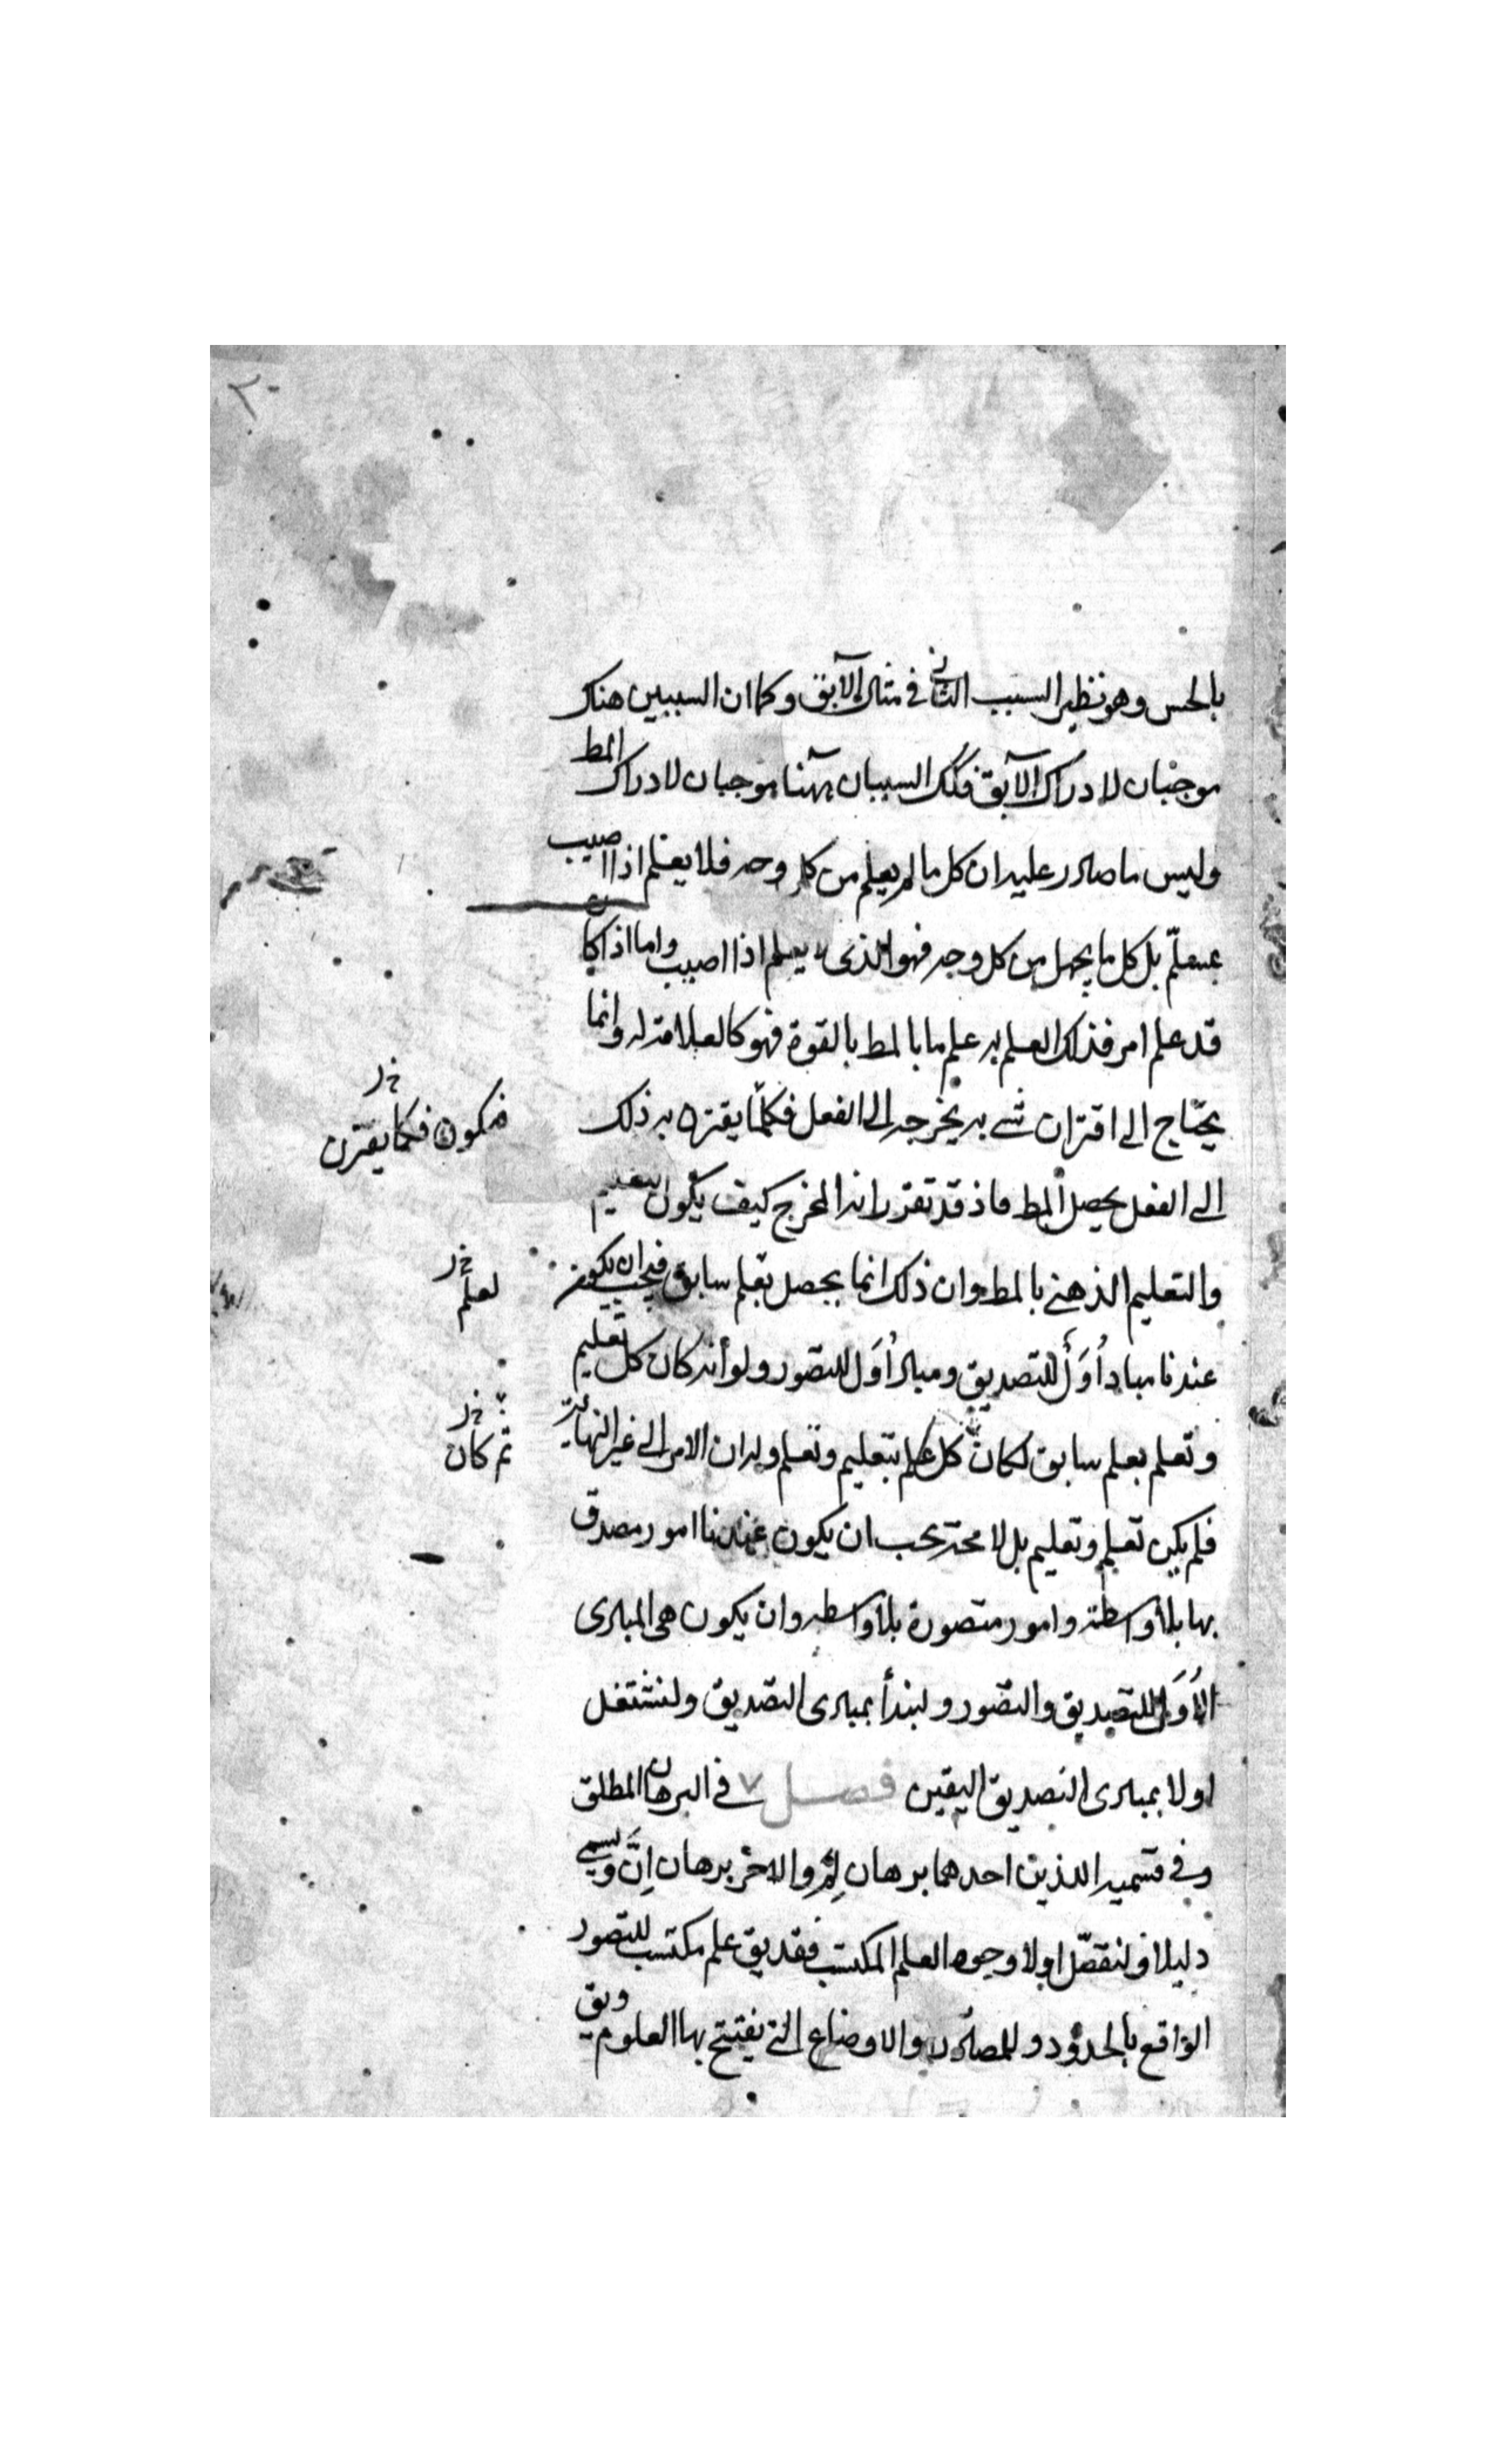 بالحس وهو نظير السبب الثانى فى مثال الآبق وكما ان السببين هناك
موجبان لادراك الآبق فكك السببان ههنا موجبان لادراك المط
وليس ما صادر عليه ان كل ما لم يعلم من كل وجه فلا يعلم اذا اصيب
بمسلّم بل كل ما يجهل من كل وجه فهو الذى لا يعلم اذا اصيب واما اذا كان
قد علم امر فذلك العلم به علم ما بالمط بالقوة فهو كالعلامة له وانما
يحتاج الى اقتران شے به يخرجه الى الفعل فكلما يقترن به ذلك
فيكون فكما يقترن
الى الفعل يحصل المط فاذ قد تقرر انه المخرج كيف يكون التعليم
والتعليم الذهنى بالمط وان ذلك انما يحصل بعلم سابق فيجب ان يكون
لعلم
عندنا مباد أُوَل للتصديق ومباد أُوَل للتصور ولو أنه كان كل تعليم
وتعلم بعلم سابق لكان كل علم بتعليم وتعلم ولدان الامر الى غير النهاية
ثم كان
فلم يكن تعلم وتعليم بل لا محة يجب ان يكون عندنا امور مصدق
بها بلا واسطة وامور متصورة بلا واسطه وان يكون هى المبادى
الأُوَل للتصديق والتصور ولنبدأ بمبادى التصديق ولنشتغل
اولا بمبادى التصديق اليقين فصل ٧ فى البرهان المطلق
وفى قسميه الذين احدهما برهان لم والاخر برهان إنّ ويسمى
دليلا ولنقصّ اولا وجوه العلم المكتسب فقديق علم مكتسب للتصور
الواقع بالحدود وللمصادرات والاوضاع التى يفتتح بها العلوم ويق